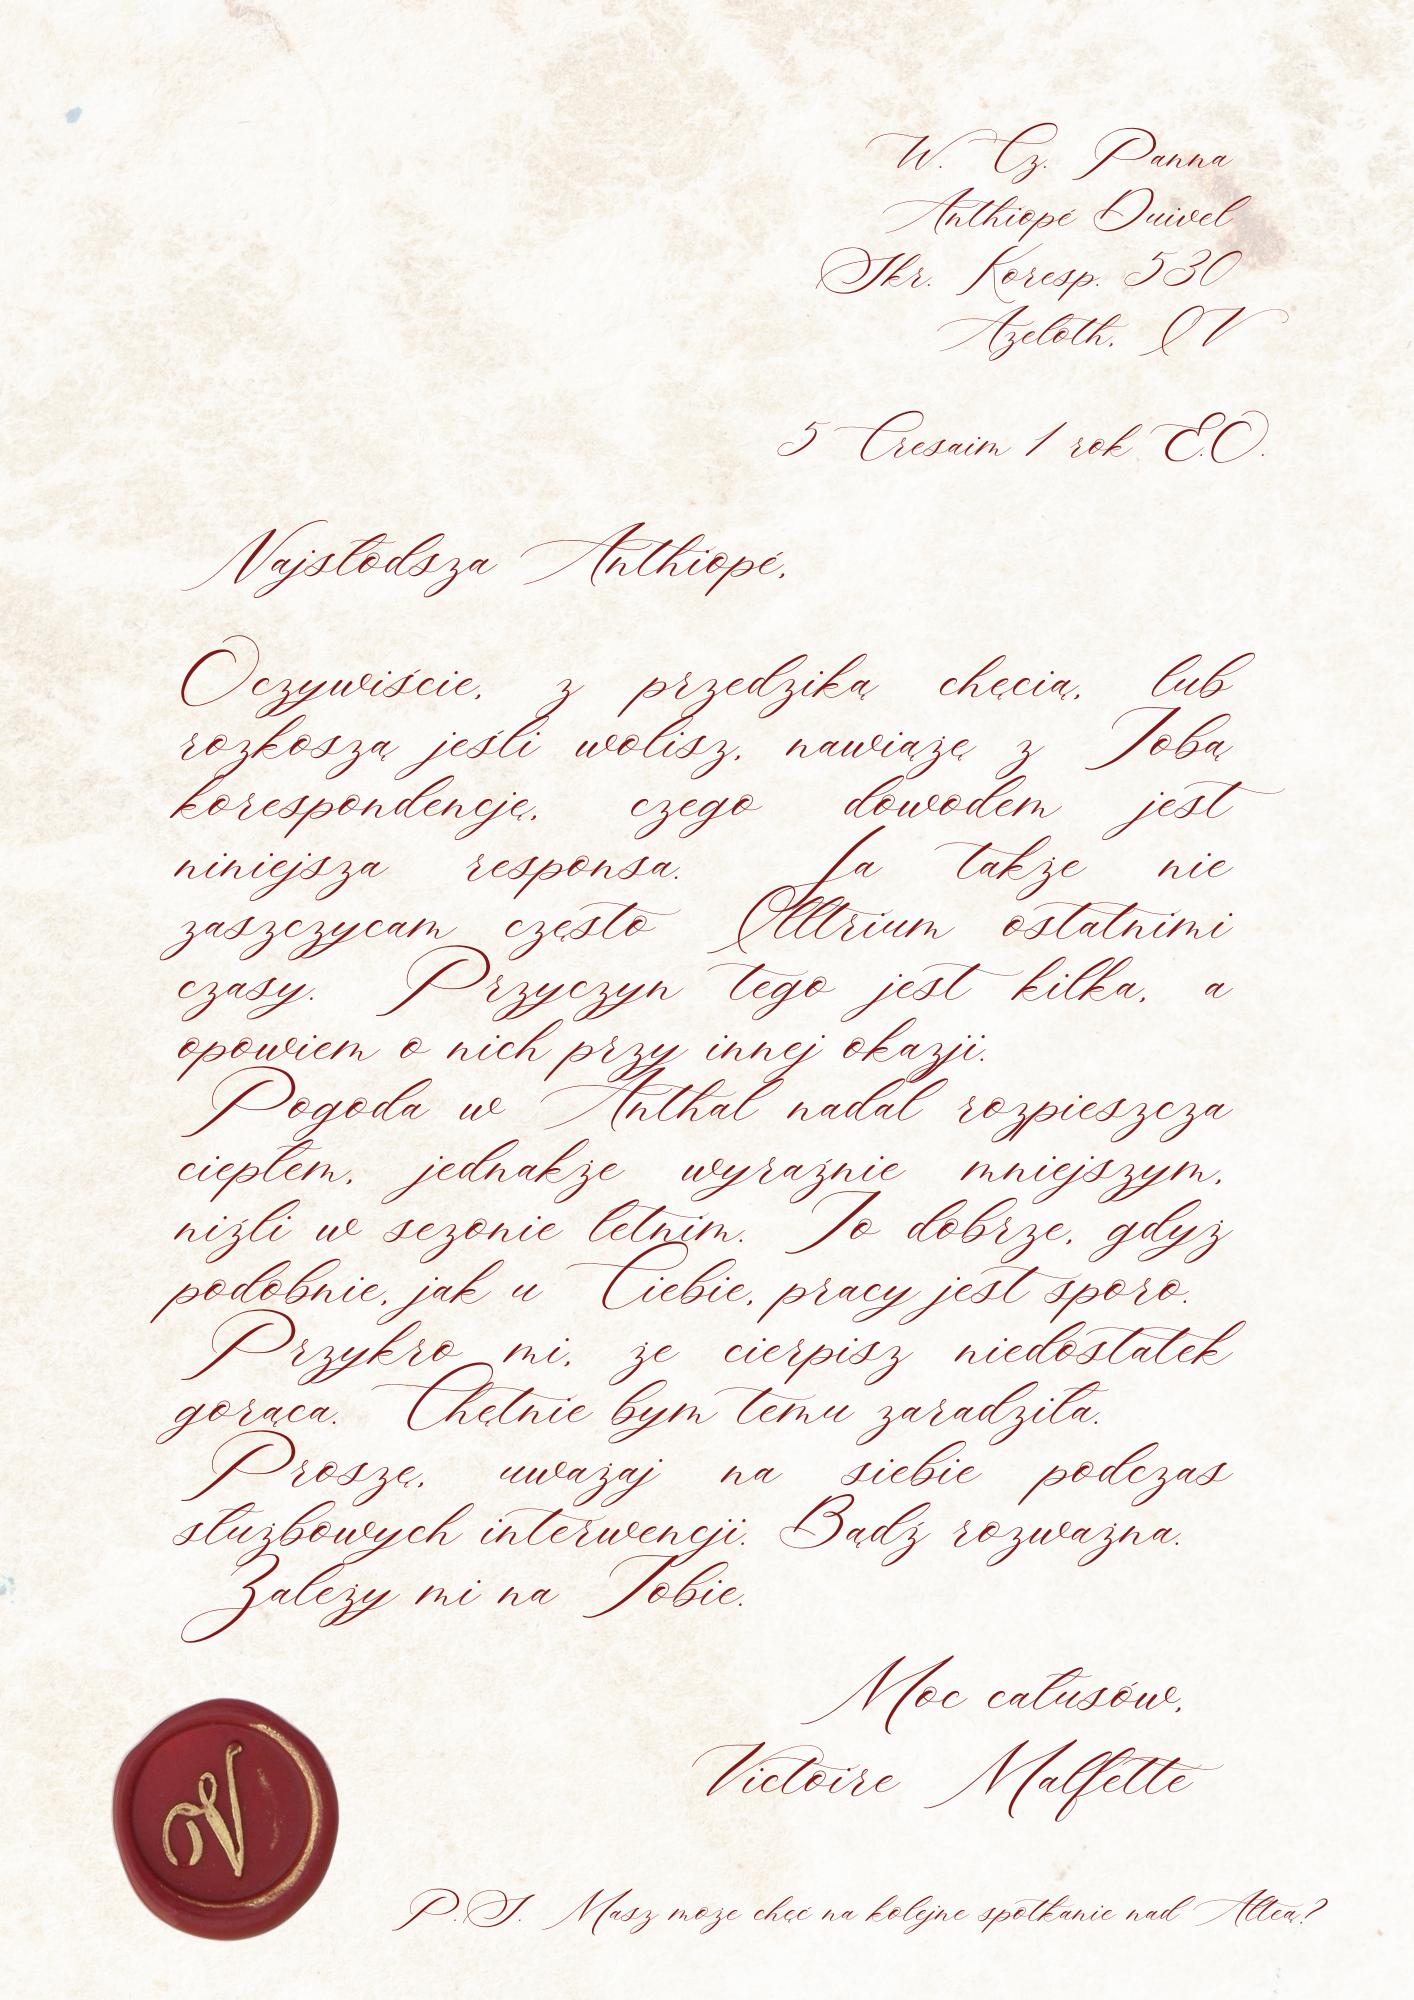 W. Cz. Panna
Anthiopé Duivel
Skr. Koresp. 530
Azeloth, QV
5 Cresaim 1 rok E.O.
Najsłodsza Anthiopé,
Oczywiście, z przedziką chęcią, lub
rozkoszą jeśli wolisz, nawiążę z Tobą
korespondencję, czego dowodem jest
niniejsza responsa. Ja także nie
zaszczycam często Qlltrium ostatnimi
czasy. Przyczyn tego jest kilka, a
opowiem o nich przy innej okazji.
Pogoda w Anthal nadal rozpieszcza
ciepłem, jednakże wyraźnie mniejszym,
niźli w sezonie letnim. To dobrze, gdyż
podobnie, jak u Ciebie, pracy jest sporo.
Przykro mi, że cierpisz niedostatek
gorąca. Chętnie bym temu zaradziła.
Proszę, uważaj na siebie podczas
służbowych interwencji. Bądź rozważna.
Zależy mi na Tobie.
Moc całusów,
Victoire Malfette
V
P.S. Masz może chęć na kolejne spotkanie nad Alteą?